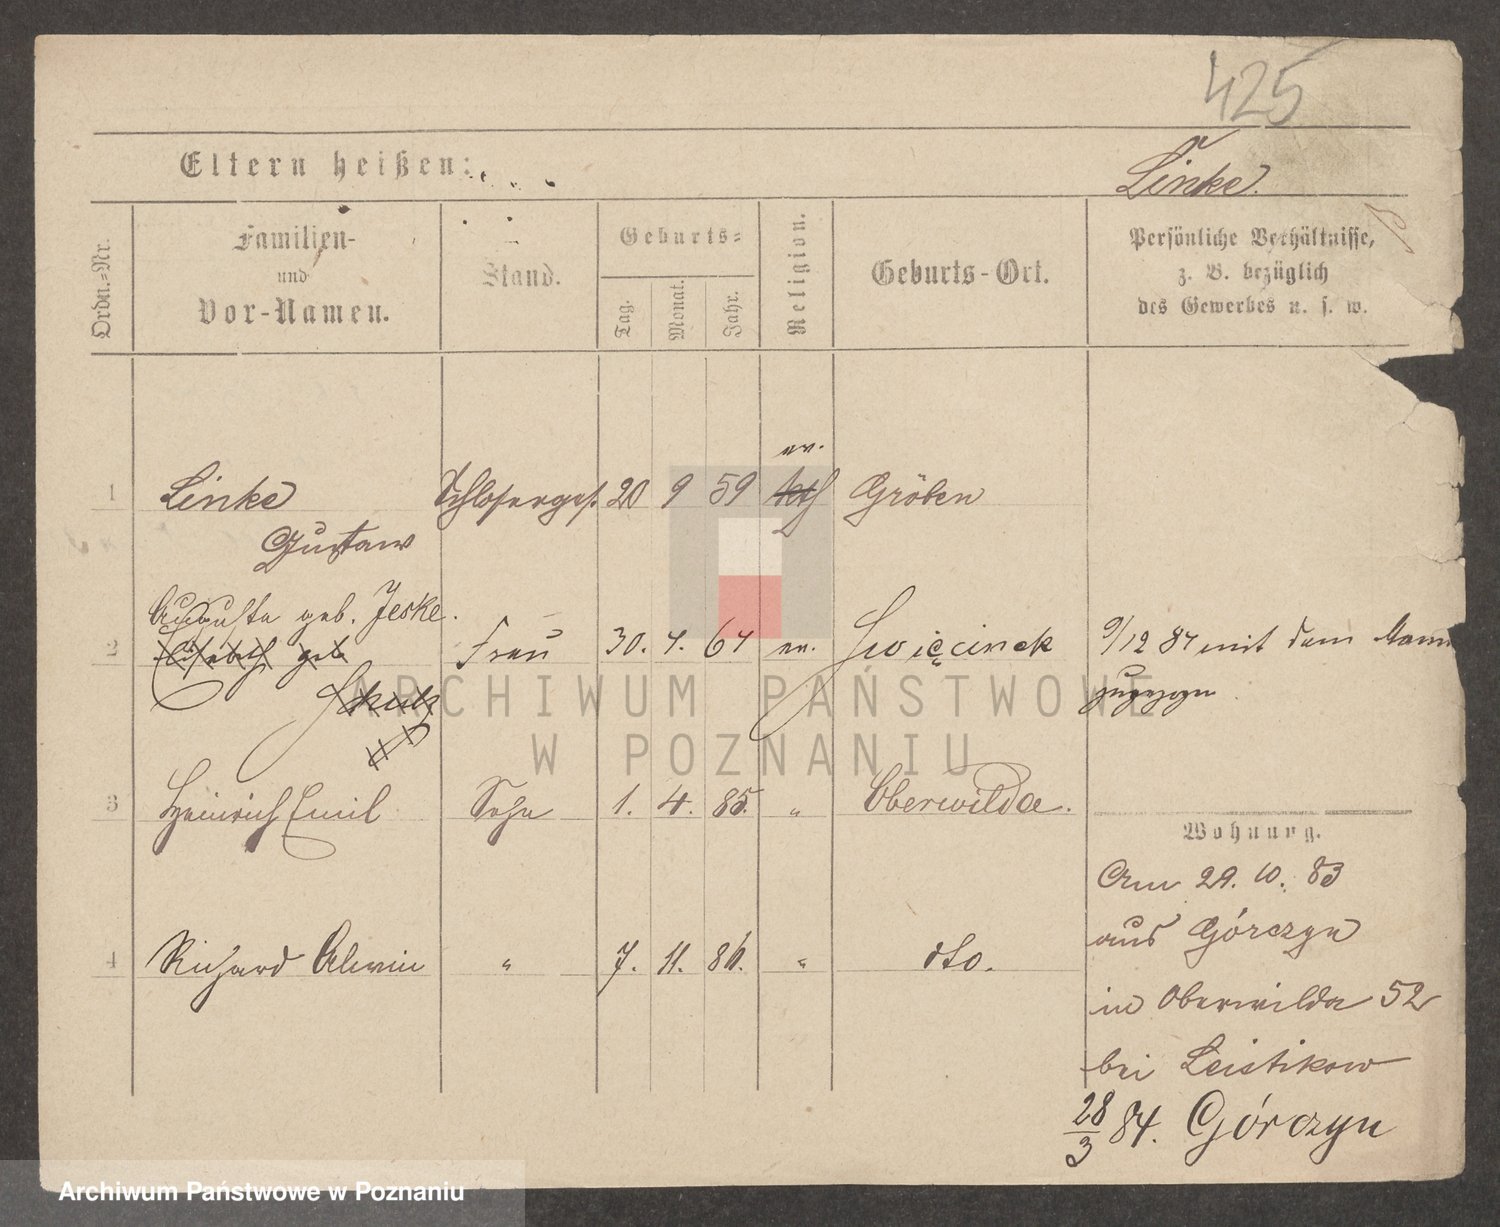 425
Eltern heißen:
Linke.
Ordn.=Nr.
Familien-
und
Vor-Namen.
Stand.
Geburts=
Tag.
Monat.
Jahr.
Religion.
Geburts-Ort.
Persönliche Verhältnisse,
z. B. bezüglich
des Gewerbes u. s. w.
ev.
1 Linke Schlosserges. 20 9 59 kth Gröben
Gustaw
Auguste geb. Jeske.
2 Elisabeth geb Frau 30. 4. 61 ev. Święcinek 9/12 84 mit dem Mann
Schulz zugezogen
3 Heinrich Emil Sohn 1. 4. 85. " Oberwilda.
Wohnung.
Am 29. 10. 83
aus Górczyn
4 Richard Alwin " 7. 11. 86. " dto.
in Oberwilda 52
bei Leistikow
28/3 84. Górczyn
ARCHIWUM PAŃSTWOWE
W POZNANIU
Archiwum Państwowe w Poznaniu